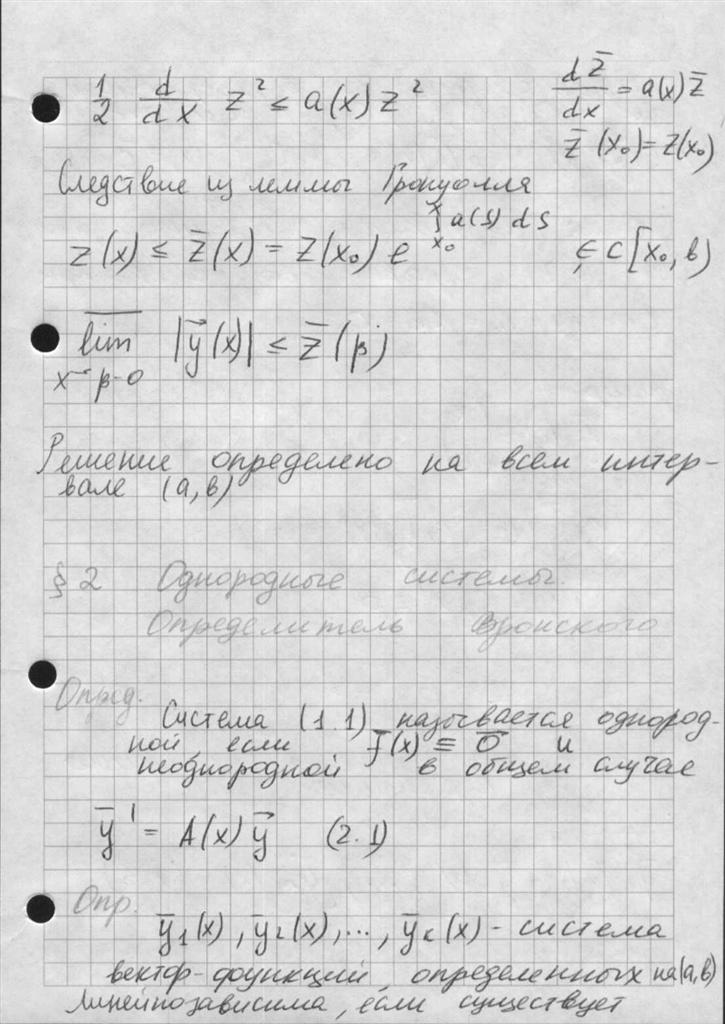 1/2 d/dx z² ≤ a(x) z²    dz̄/dx = a(x) z̄
z̄(x₀) = z(x₀)
Следствие из леммы Гронуолла
z(x) ≤ z̄(x) = z(x₀) e^{∫_{x₀}^{x} a(s) ds}    ∈ C[x₀, b)
lim̅_{x→β-0} |ȳ(x)| ≤ z̄(β)
Решение определено на всем интер-
вале (a, b)
§ 2 Однородные системы.
Определитель Вронского
Опред.
Система (1.1) называется однород-
ной, если f̄(x) ≡ ō и
неоднородной в общем случае
ȳ' = A(x) ȳ (2.1)
Опр.
ȳ₁(x), ȳ₂(x), ..., ȳₖ(x) - система
вектр-функций, определенных на (a, b)
линейнозависима, если существует